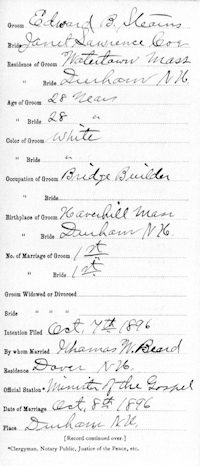 Groom Edward B. Stearns
Bride Janet Lawrence Coe
Residence of Groom Watertown Mass
" Bride Durham N.H.
Age of Groom 28 Years
" Bride 28 "
Color of Groom White
" Bride "
Occupation of Groom Bridge Builder
" Bride
Birthplace of Groom Haverhill Mass
" Bride Durham N.H.
No. of Marriage of Groom 1st
" Bride 1st
Groom Widowed or Divorced
Bride " "
Intention Filed Oct. 7th 1896
By whom Married Thomas W. Beard
Residence Dover N.H.
Official Station* Minister of the Gospel
Date of Marriage Oct. 8th 1896
Place Durham N.H.
[Record continued over.]
*Clergyman, Notary Public, Justice of the Peace, etc.